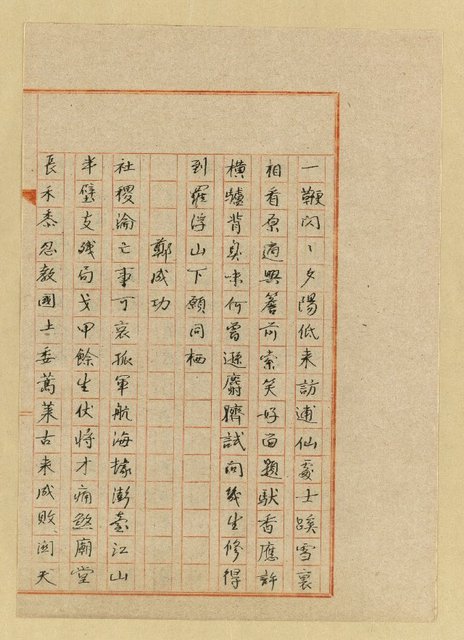 一鞭閃〻夕陽低来訪逋仙處士蹊雪裏
相看原適興簷前索笑好留題馱香應許
橫驢背臭味何嘗遜麝臍試向幾生修得
到羅浮山下願同栖
鄭成功
社稷淪亡事可哀孤軍航海據澎臺江山
半壁支殘局戈甲餘生伏將才痛煞廟堂
長禾黍忍教國土委蒿萊古来成敗関天